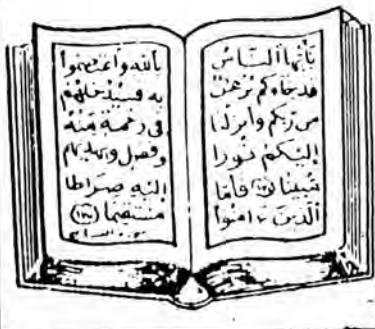 يَٰأَيُّهَا النَّاسُ
قَدْ جَاءَكُم بُرْهَٰنٌ
مِن رَّبِّكُمْ وَأَنزَلْنَا
إِلَيْكُمْ نُورًا
مُّبِينًا (١٧٤) فَأَمَّا
الَّذِينَ ءَامَنُوا
بِاللَّهِ وَاعْتَصَمُوا
بِهِ فَسَيُدْخِلُهُمْ
فِي رَحْمَةٍ مِّنْهُ
وَفَضْلٍ وَيَهْدِيهِمْ
إِلَيْهِ صِرَاطًا
مُّسْتَقِيمًا (١٧٥)